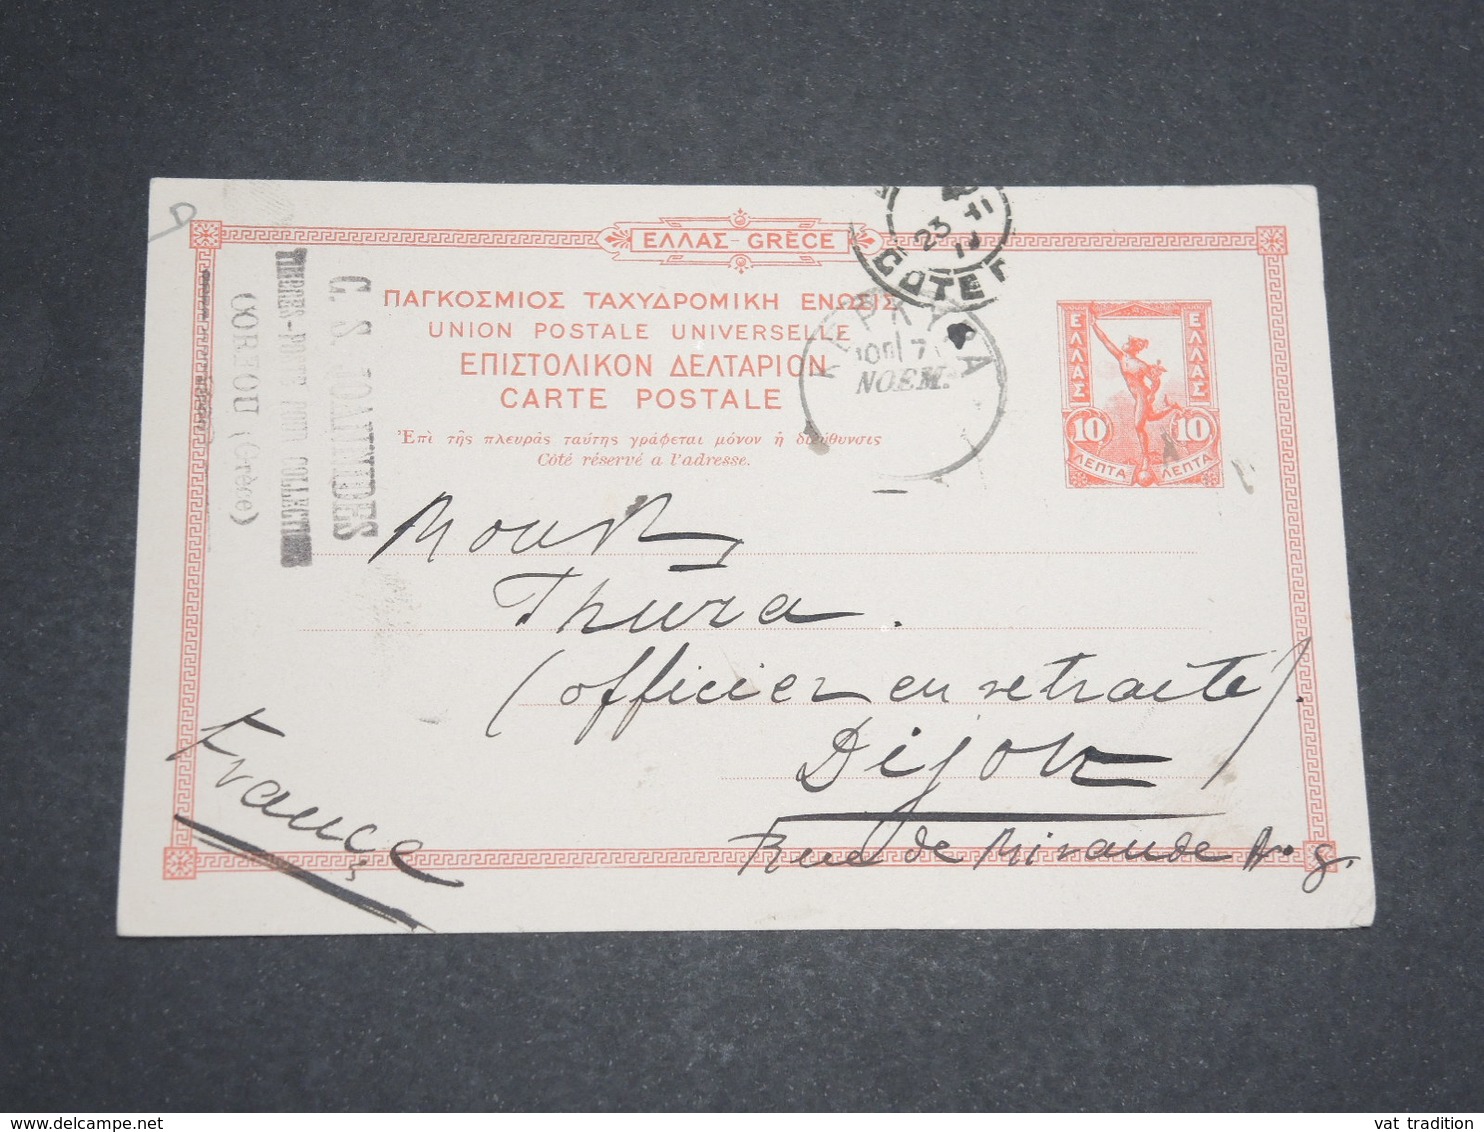 ΕΛΛΑΣ - GRÈCE
ΠΑΓΚΟΣΜΙΟΣ ΤΑΧΥΔΡΟΜΙΚΗ ΕΝΩΣΙΣ
UNION POSTALE UNIVERSELLE
ΕΠΙΣΤΟΛΙΚΟΝ ΔΕΛΤΑΡΙΟΝ
CARTE POSTALE
Ἐπὶ τῆς πλευρᾶς ταύτης γράφεται μόνον ἡ διεύθυνσις
Côté réservé a l'adresse.
23
COTE
ΚΕΡΚΥΡΑ
7
ΝΟΕΜ.
ΕΛΛΑΣ
ΕΛΛΑΣ
10
10
ΛΕΠΤΑ
ΛΕΠΤΑ
C. S. JOANNIDES
TIMBRES-POSTE POUR COLLECTIONS
CORFOU (Grèce)
D
Thura.
(officier en retraite)
Dijon
Rue de Mirande No. 8.
France
vat tradition